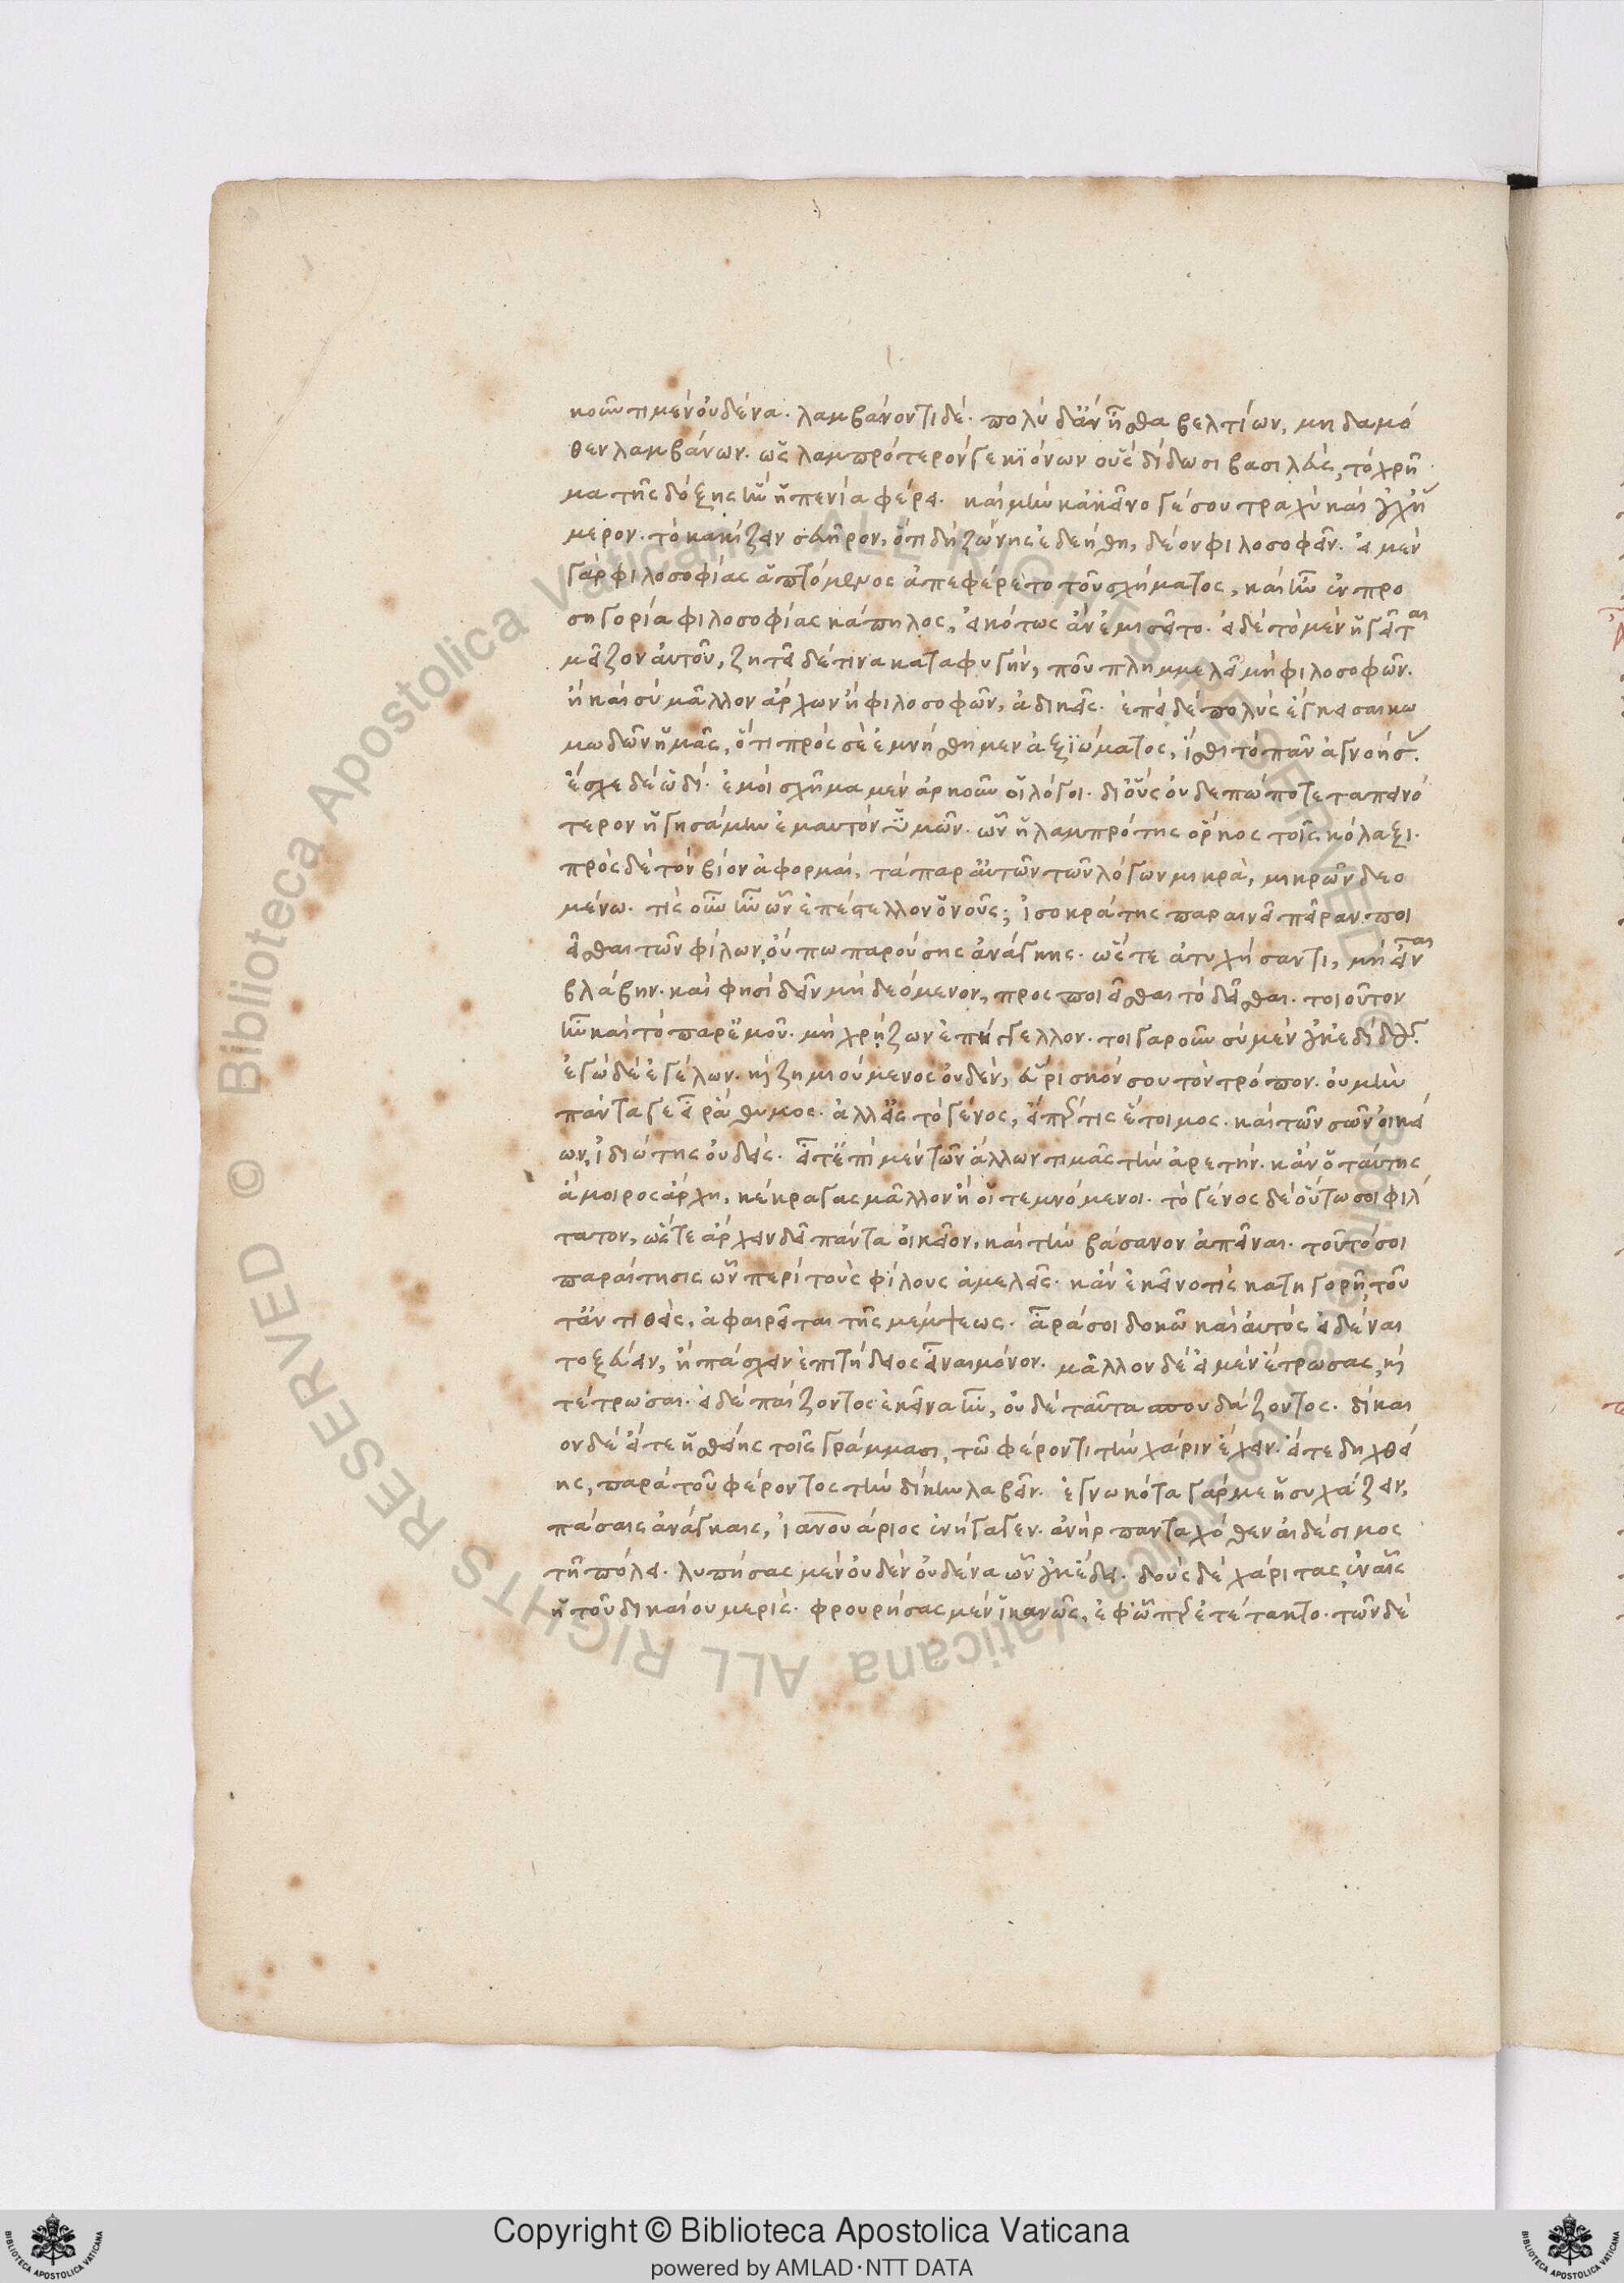 κοῦντι μὲν οὐδένα. λαμβάνοντι δέ. πολὺ δ' ἂν ἦσθα βελτίων, μηδαμό
θεν λαμβάνων. ὡς λαμπρότερόν γε κιόνων οὓς δίδωσι βασιλεύς, τὸ χρῆ
μα τῆς δόξης ἣν ἡ πενία φέρει. καὶ μὴν κἀκεῖνό γέ σου τραχὺ καὶ
μερον. τὸ κακίζειν σευῆρον, ὅτι δὴ ζώνης ἐδεήθη, δέον φιλοσοφεῖν. εἰ μὲν
γὰρ φιλοσοφίας ἁπτόμενος ἀπεφέρετο τοῦ σχήματος, καὶ ἦν ἐν προ
σηγορία φιλοσοφίας κάπηλος, εἰκότως ἂν ἐμισεῖτο. εἰ δὲ τὸ μὲν ἡγεῖται
μεῖζον αὐτοῦ, ζητεῖ δέ τινα καταφυγήν, ποῦ πλημμελεῖ μὴ φιλοσοφῶν.
ἢ καὶ σὺ μᾶλλον ἄρχων ἢ φιλοσοφῶν, ἀδικεῖς. ἐπεὶ δὲ πολὺς ἔγκεισαι κω
μωδῶν ἡμᾶς, ὅτι πρὸς σὲ ἐμνήσθημεν ἀξιώματος, ἴσθι τὸ πᾶν ἀγνοήσ
ἔσχε δὲ ὡδί. ἐμοὶ σχῆμα μὲν ἀρκοῦν οἱ λόγοι. δι' οὓς οὐδεπώποτε ταπεινό
τερον ἡγησάμην ἐμαυτὸν ὑμῶν. ὧν ἡ λαμπρότης ὅρκος τοῖς κόλαξι.
πρὸς δὲ τὸν βίον ἀφορμαί, τὰ παρ' αὐτῶν τῶν λόγων μικρά, μικρῶν δεο
μένω. τίς οὖν ἦν ὧν ἐπέστελλον ὁ νοῦς; ἰσοκράτης παραινεῖ πεῖραν ποι
εῖσθαι τῶν φίλων, οὔπω παρούσης ἀνάγκης. ὥστε ἀτυχήσαντι, μὴ εἶναι
βλάβην. καί φησι δεῖν μὴ δεόμενον, προσποιεῖσθαι τὸ δεῖσθαι. τοιοῦτον
ἦν καὶ τὸ παρ' ἐμοῦ. μὴ χρήζων ἐπέστελλον. τοιγαροῦν σὺ μὲν οὐκ ἐδίδους
ἐγὼ δὲ ἐγέλων. καὶ ζημιούμενος οὐδέν, εὕρισκόν σου τὸν τρόπον. οὐ μὴν
πάντα γε εἶ ῥάθυμος. ἀλλ' εἰς τὸ γένος, εἴπέρ τις ἕτοιμος. καὶ τῶν σῶν οἰκεί
ων, ἰδιώτης οὐδείς. εἶτ' ἐπὶ μὲν τῶν ἄλλων τιμᾶς τὴν ἀρετήν. κἂν ὁ ταύτης
ἄμοιρος ἄρχη, κέκραγας μᾶλλον ἢ οἱ τεμνόμενοι. τὸ γένος δὲ οὕτω σοι φίλ
τατον, ὥστε ἄρχειν δεῖ πάντα οἰκεῖον, καὶ τὴν βάσανον ἀπεῖναι. τοῦτό σοι
παραίτησις ὧν περὶ τοὺς φίλους ἀμελεῖς. κἂν ἐκεῖνό τις κατηγορῆ, τοῦ
τ' ἀντιθείς, ἀφαιρεῖται τῆς μέμψεως. ἆρά σοι δοκῶ καὶ αὐτὸς εἰδέναι
τοξεύειν, ἢ πάσχειν ἐπιτήδειος εἶναι μόνον. μᾶλλον δὲ εἰ μὲν ἔτρωσας, καὶ
τέτρωσαι. εἰ δὲ παίζοντος ἐκεῖνα ἦν, οὐδὲ ταῦτα σπουδάζοντος. δίκαι
ον δὲ εἴτε ἥσθείης τοῖς γράμμασι, τῶ φέροντι τὴν χάριν ἔχειν. εἴτε δηχθεί
ης, παρὰ τοῦ φέροντος τὴν δίκην λαβεῖν. ἐγνωκότα γάρ με ἡσυχάζειν,
πάσαις ἀνάγκαις, ἰανουάριος ἐνήγαγεν. ἀνὴρ πανταχόθεν αἰδέσιμος
τῆ πόλει. λυπήσας μὲν οὐδὲν οὐδένα ὧν οὐκ ἔδει. δοὺς δὲ χάριτας ἐν αἷς
ἡ τοῦ δικαίου μερίς. φρουρήσας μὲν ἱκανῶς, ἐφ' ὧπερ ἐτέτακτο. τῶν δὲ
Copyright © Biblioteca Apostolica Vaticana
powered by AMLAD·NTT DATA